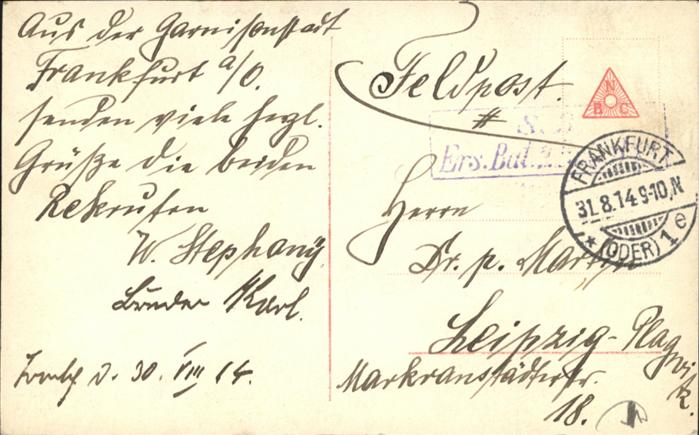 Aus der Garnisonstadt
Frankfurt a/O.
senden viele herzl.
Grüße die beiden
Rekruten
W. Stephany
Bruder Karl.
d. 30. VIII 14.
Feldpost.
N
B C
S.
Ers. Bat.
FRANKFURT
31.8.14.9-10.N
* (ODER) 1 e
Herrn
Dr. p.
Leipzig-Plagwitz.
Markranstädterstr.
18.